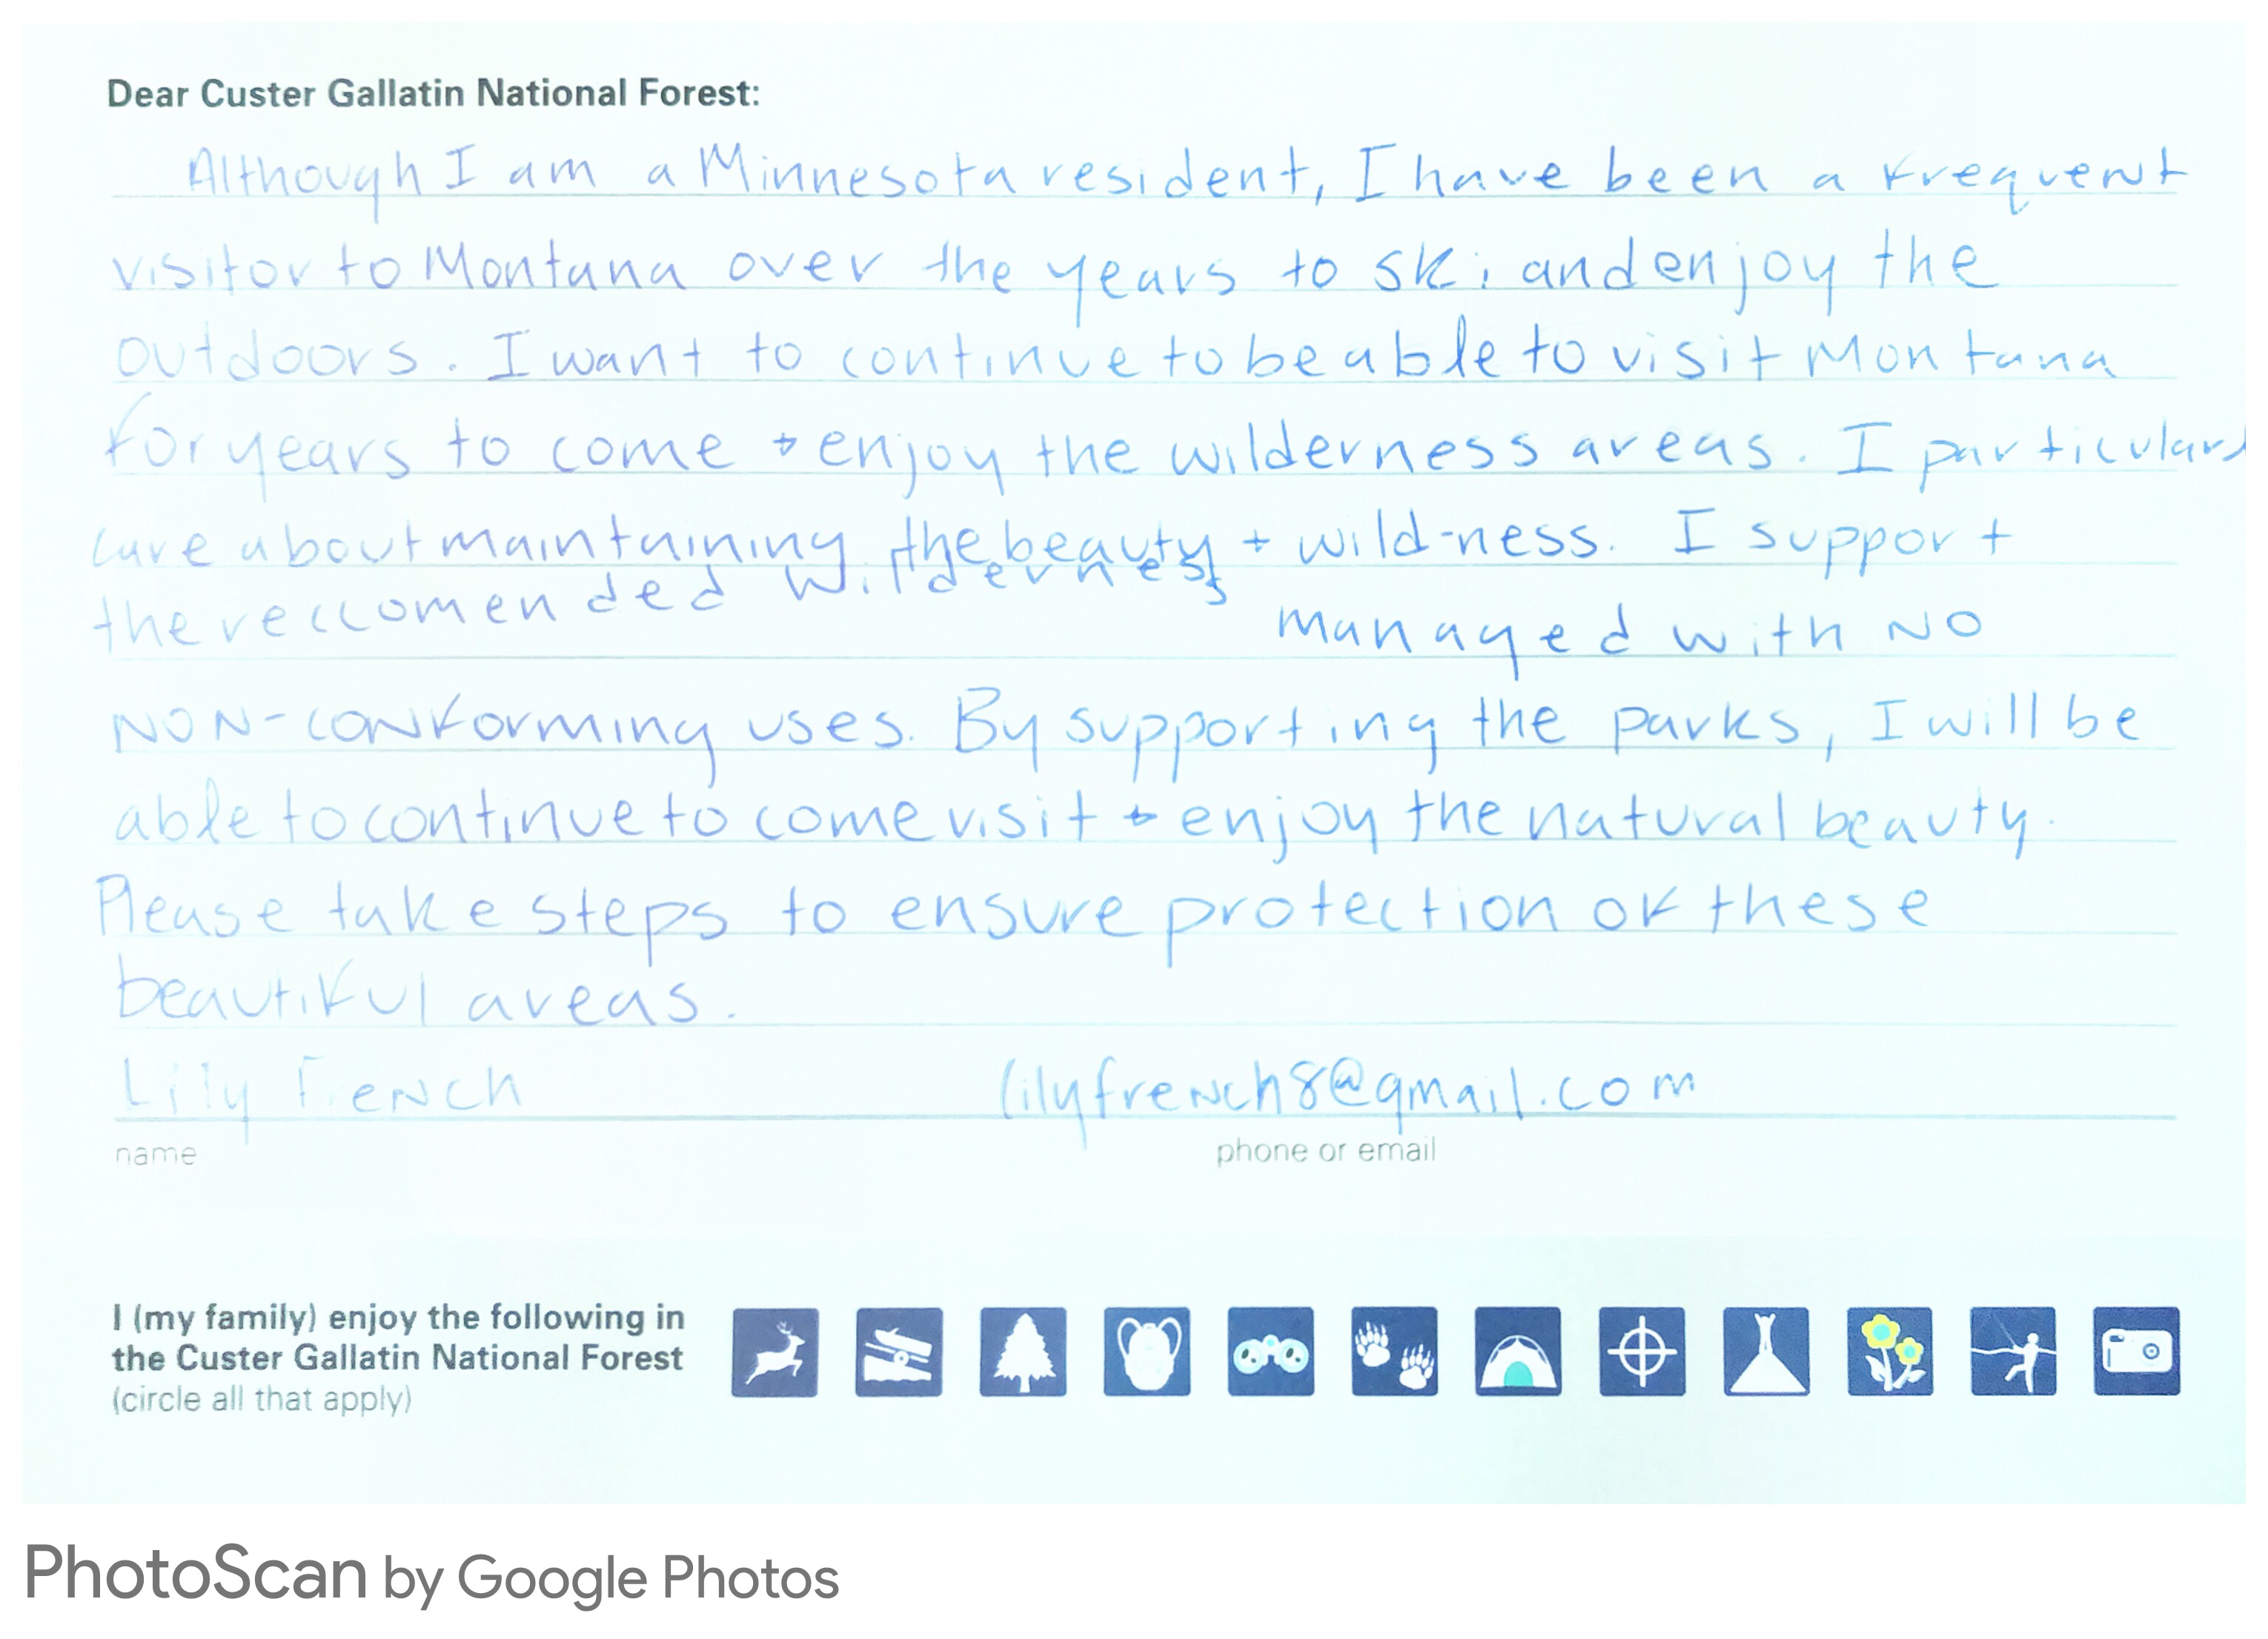 Dear Custer Gallatin National Forest:
Although I am a Minnesota resident, I have been a frequent
visitor to Montana over the years to ski and enjoy the
outdoors. I want to continue to be able to visit Montana
for years to come + enjoy the wilderness areas. I particularl
care about maintaining the beauty + wild-ness. I support
the reccomended Wilderness managed with NO
NON-conforming uses. By supporting the parks, I will be
able to continue to come visit + enjoy the natural beauty.
Please take steps to ensure protection of these
beautiful areas.
Lily French lilyfrench8@gmail.com
name phone or email
I (my family) enjoy the following in
the Custer Gallatin National Forest
(circle all that apply)
PhotoScan by Google Photos